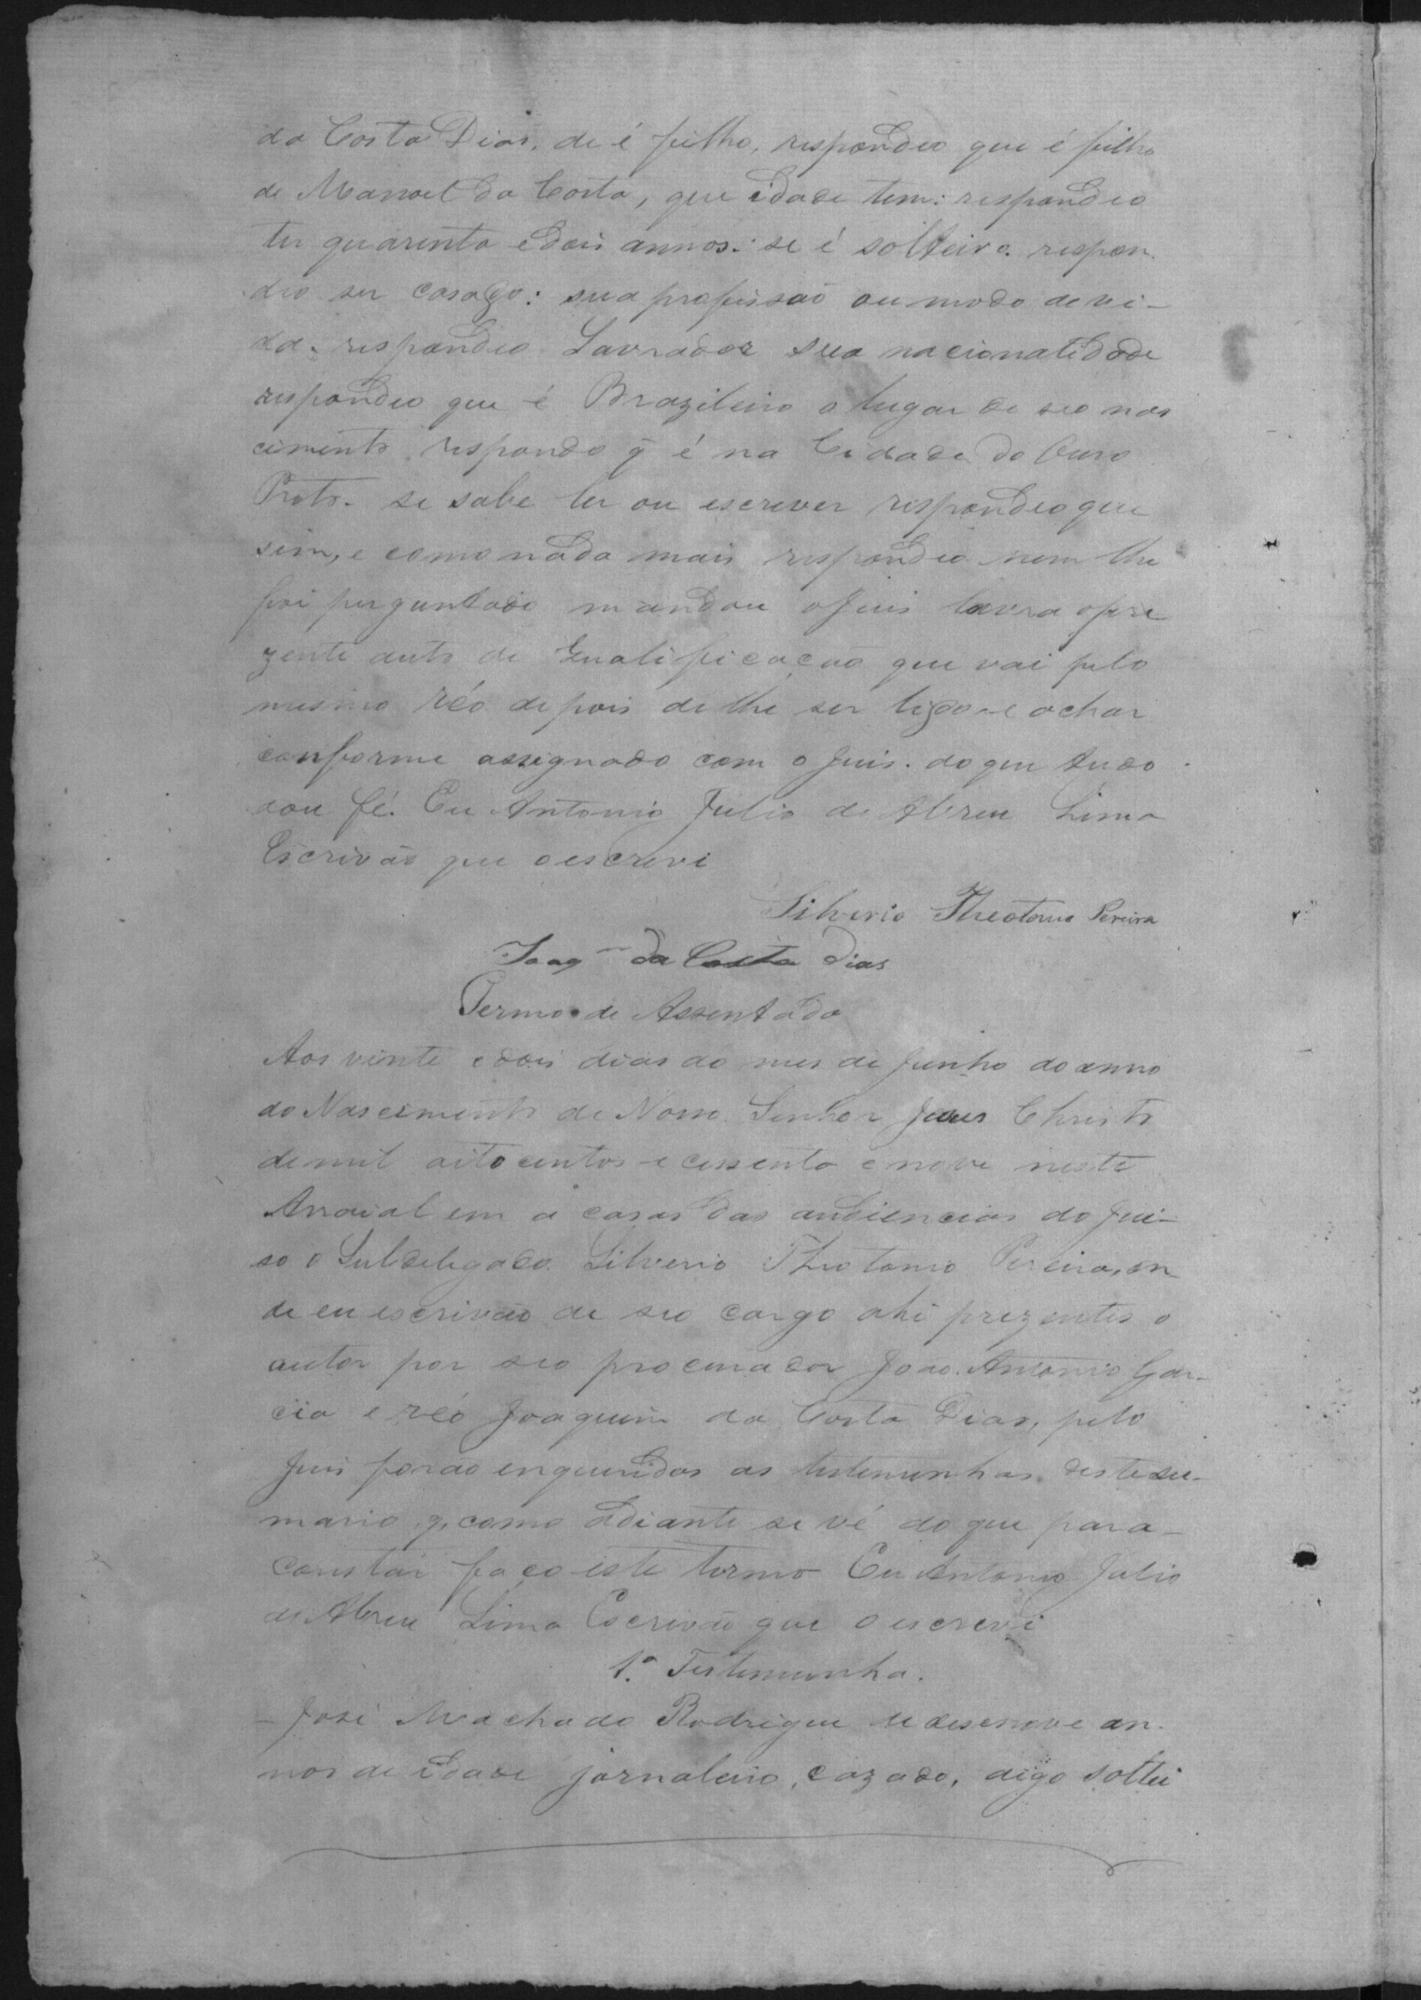 da Costa Dias, de é filho, respondeo que é filho
de Manoel da Costa, que idade tem: respondeo
ter quarenta e dois annos: se é solteiro. respon
deo ser casado: sua profissaõ ou modo de vi-
da. respondeo Lavrador sua nacionalidade
respondeo que é Brazileiro o lugar de seo nas
cimento, respondo q̃ é na Cidade do Ouro
Preto. se sabe ler ou escrever respondeo que
sim, e como nada mais respondeo nem lhe
foi perguntado mandou o Juis lavra o pre
zente auto de Qualificacaõ que vai pelo
mesmo réo depois de lhe ser lido e achar
conforme assignado com o Juis. do que tudo
dou fé. Eu Antonio Julio de Abreu Lima
Escrivão que o escrevi
Silverio Theotonio Pereira
Joaqm da Costa Dias
Termo de Assentada
Aos vinte e dois dias do mes de Junho do anno
do Nascimento de Nosso Senhor Jesus Christo
de mil oitocentos e cessenta e nove neste
Arraial em a casas das audiencias do Jui-
so o Subdelegado Silverio Theotonio Pereira, on
de eu escrivão de seo cargo ahi prezentes o
autor por seo procurador João Antonio Gar-
cia e réo Joaquim da Costa Dias, pelo
Juis forão enqueridas as testemunhas deste su-
mario q. como adiante se vé do que para-
constar faço este termo Eu Antonio Julio
de Abreu Lima Escrivão que o escrevi
1.ª Testemunha.
José Machado Rodrigue de desenove an-
nos de idade jornaleiro, cazado, digo soltei